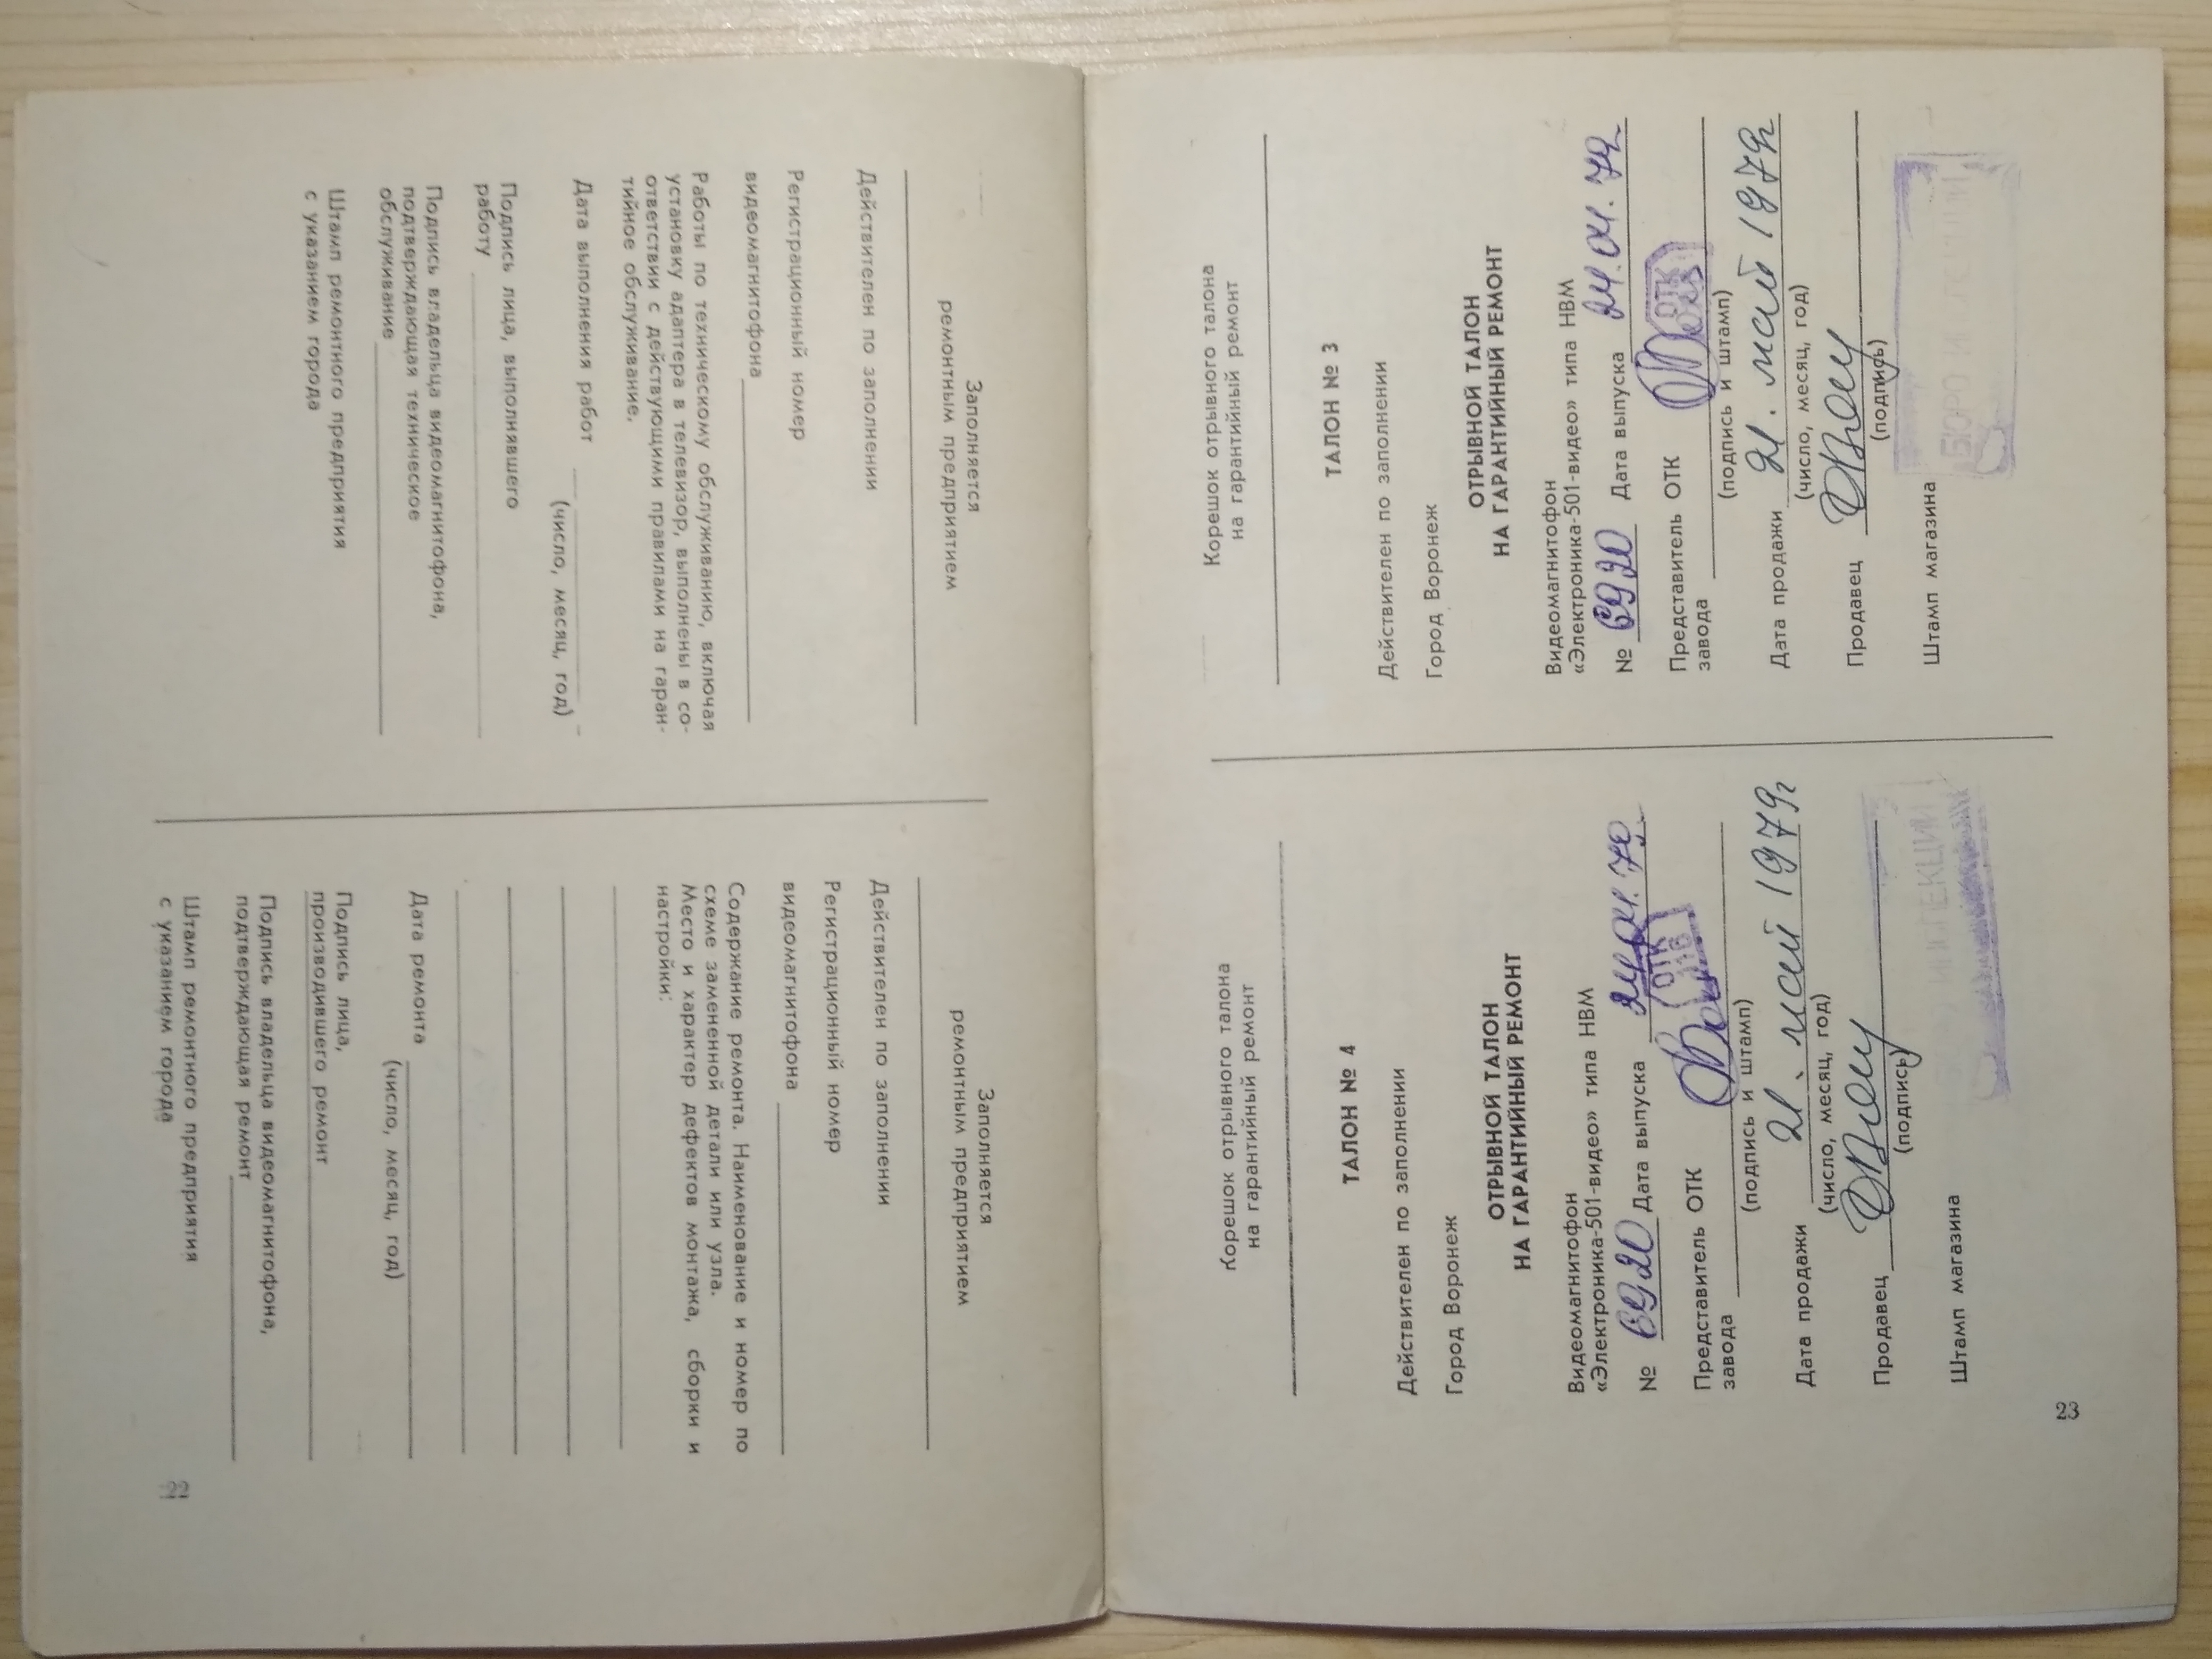 Заполняется
ремонтным предприятием
Действителен по заполнении
Регистрационный номер
видеомагнитофона
Работы по техническому обслуживанию, включая
установку адаптера в телевизор, выполнены в со-
ответствии с действующими правилами на гаран-
тийное обслуживание.
Дата выполнения работ
(число, месяц, год)
Подпись лица, выполнявшего
работу
Подпись владельца видеомагнитофона,
подтверждающая техническое
обслуживание
Штамп ремонтного предприятия
с указанием города
Заполняется
ремонтным предприятием
Действителен по заполнении
Регистрационный номер
видеомагнитофона
Содержание ремонта. Наименование и номер по
схеме замененной детали или узла.
Место и характер дефектов монтажа, сборки и
настройки:
Дата ремонта
(число, месяц, год)
Подпись лица,
производившего ремонт
Подпись владельца видеомагнитофона,
подтверждающая ремонт
Штамп ремонтного предприятия
с указанием города
22
Корешок отрывного талона
на гарантийный ремонт
ТАЛОН № 3
Действителен по заполнении
Город Воронеж
ОТРЫВНОЙ ТАЛОН
НА ГАРАНТИЙНЫЙ РЕМОНТ
Видеомагнитофон
«Электроника-501-видео» типа НВМ
№ 6920 Дата выпуска 24.04.79
Представитель ОТК
завода
ОТК
(подпись и штамп)
Дата продажи 21. май 1979г
(число, месяц, год)
Продавец
(подпись)
Штамп магазина
БЮРО И
Корешок отрывного талона
на гарантийный ремонт
ТАЛОН № 4
Действителен по заполнении
Город Воронеж
ОТРЫВНОЙ ТАЛОН
НА ГАРАНТИЙНЫЙ РЕМОНТ
Видеомагнитофон
«Электроника-501-видео» типа НВМ
№ 6920 Дата выпуска 24.04.79
Представитель ОТК
завода
ОТК
(подпись и штамп)
Дата продажи 21. май 1979г
(число, месяц, год)
Продавец
(подпись)
Штамп магазина
23